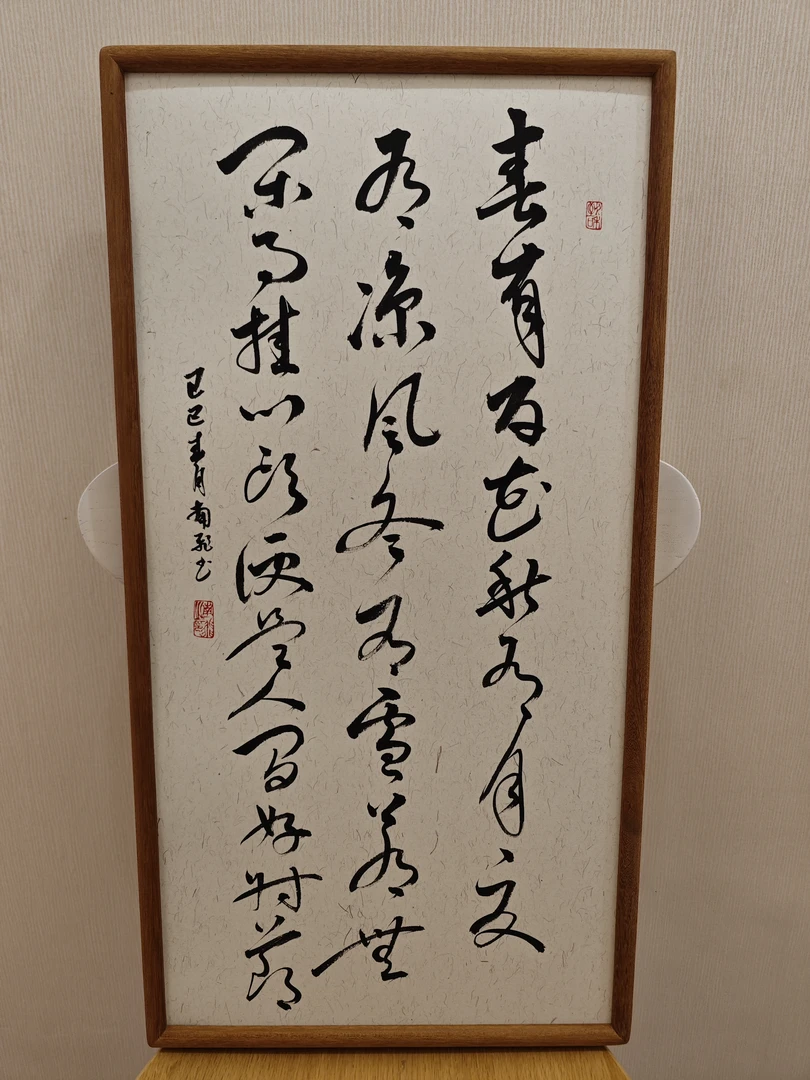 春有百花秋有月夏
有凉风冬有雪若無
闲事挂心头便是人间好时節
巳春月南书